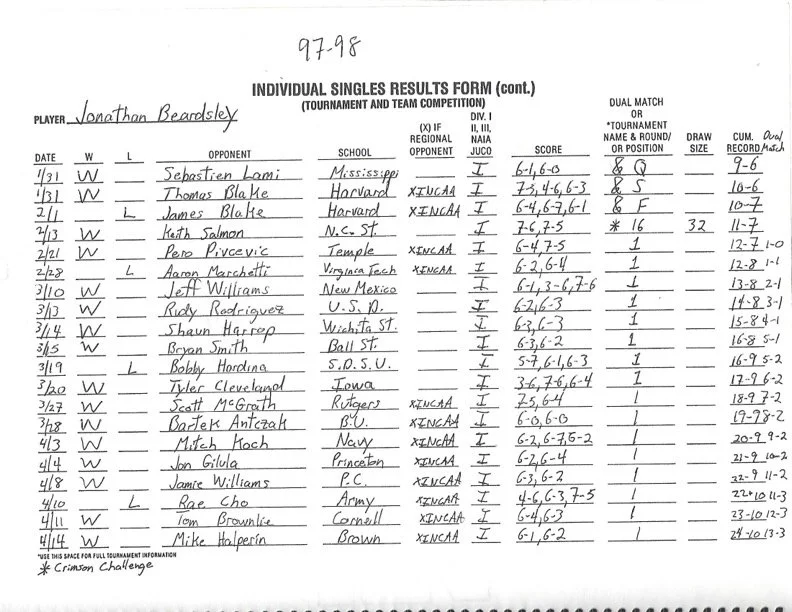 97-98
INDIVIDUAL SINGLES RESULTS FORM (cont.)
(TOURNAMENT AND TEAM COMPETITION)
PLAYER Jonathan Beardsley
DATE W L OPPONENT SCHOOL (X) IF REGIONAL OPPONENT DIV. I II, III, NAIA JUCO SCORE DUAL MATCH OR *TOURNAMENT NAME & ROUND/ OR POSITION DRAW SIZE CUM. RECORD Dual Match
1/31 W Sebastien Lami Mississippi I 6-1, 6-0 & Q 9-6
1/31 W Thomas Blake Harvard XINCAA I 7-5, 4-6, 6-3 & S 10-6
2/1 L James Blake Harvard XINCAA I 6-4, 6-7, 6-1 & F 10-7
2/13 W Keith Salmon N.C. St. I 7-6, 7-5 * 16 32 11-7
2/21 W Pero Pivcevic Temple XINCAA I 6-4, 7-5 1 12-7 1-0
2/28 L Aaron Marchetti Virginia Tech XINCAA I 6-2, 6-4 1 12-8 1-1
3/10 W Jeff Williams New Mexico I 6-1, 3-6, 7-6 1 13-8 2-1
3/13 W Rudy Rodriguez U.S.D. I 6-2, 6-3 1 14-8 3-1
3/14 W Shaun Harrop Wichita St. I 6-3, 6-3 1 15-8 4-1
3/15 W Bryan Smith Ball St. I 6-3, 6-2 1 16-8 5-1
3/19 L Bobby Hordina S.D.S.U. I 5-7, 6-1, 6-3 1 16-9 5-2
3/20 W Tyler Cleveland Iowa I 3-6, 7-6, 6-4 1 17-9 6-2
3/27 W Scott McGrath Rutgers XINCAA I 7-5, 6-4 1 18-9 7-2
3/28 W Bartek Antczak B.U. XINCAA I 6-0, 6-0 1 19-9 8-2
4/3 W Mitch Koch Navy XINCAA I 6-2, 6-7, 5-2 1 20-9 9-2
4/4 W Jon Gilula Princeton XINCAA I 6-2, 6-4 1 21-9 10-2
4/8 W Jamie Williams P.C. XINCAA I 6-3, 6-2 1 22-9 11-2
4/10 L Rae Cho Army XINCAA I 4-6, 6-3, 7-5 1 22-10 11-3
4/11 W Tom Brownlie Cornell XINCAA I 6-4, 6-3 1 23-10 12-3
4/14 W Mike Halperin Brown XINCAA I 6-1, 6-2 1 24-10 13-3
*USE THIS SPACE FOR FULL TOURNAMENT INFORMATION
* Crimson Challenge